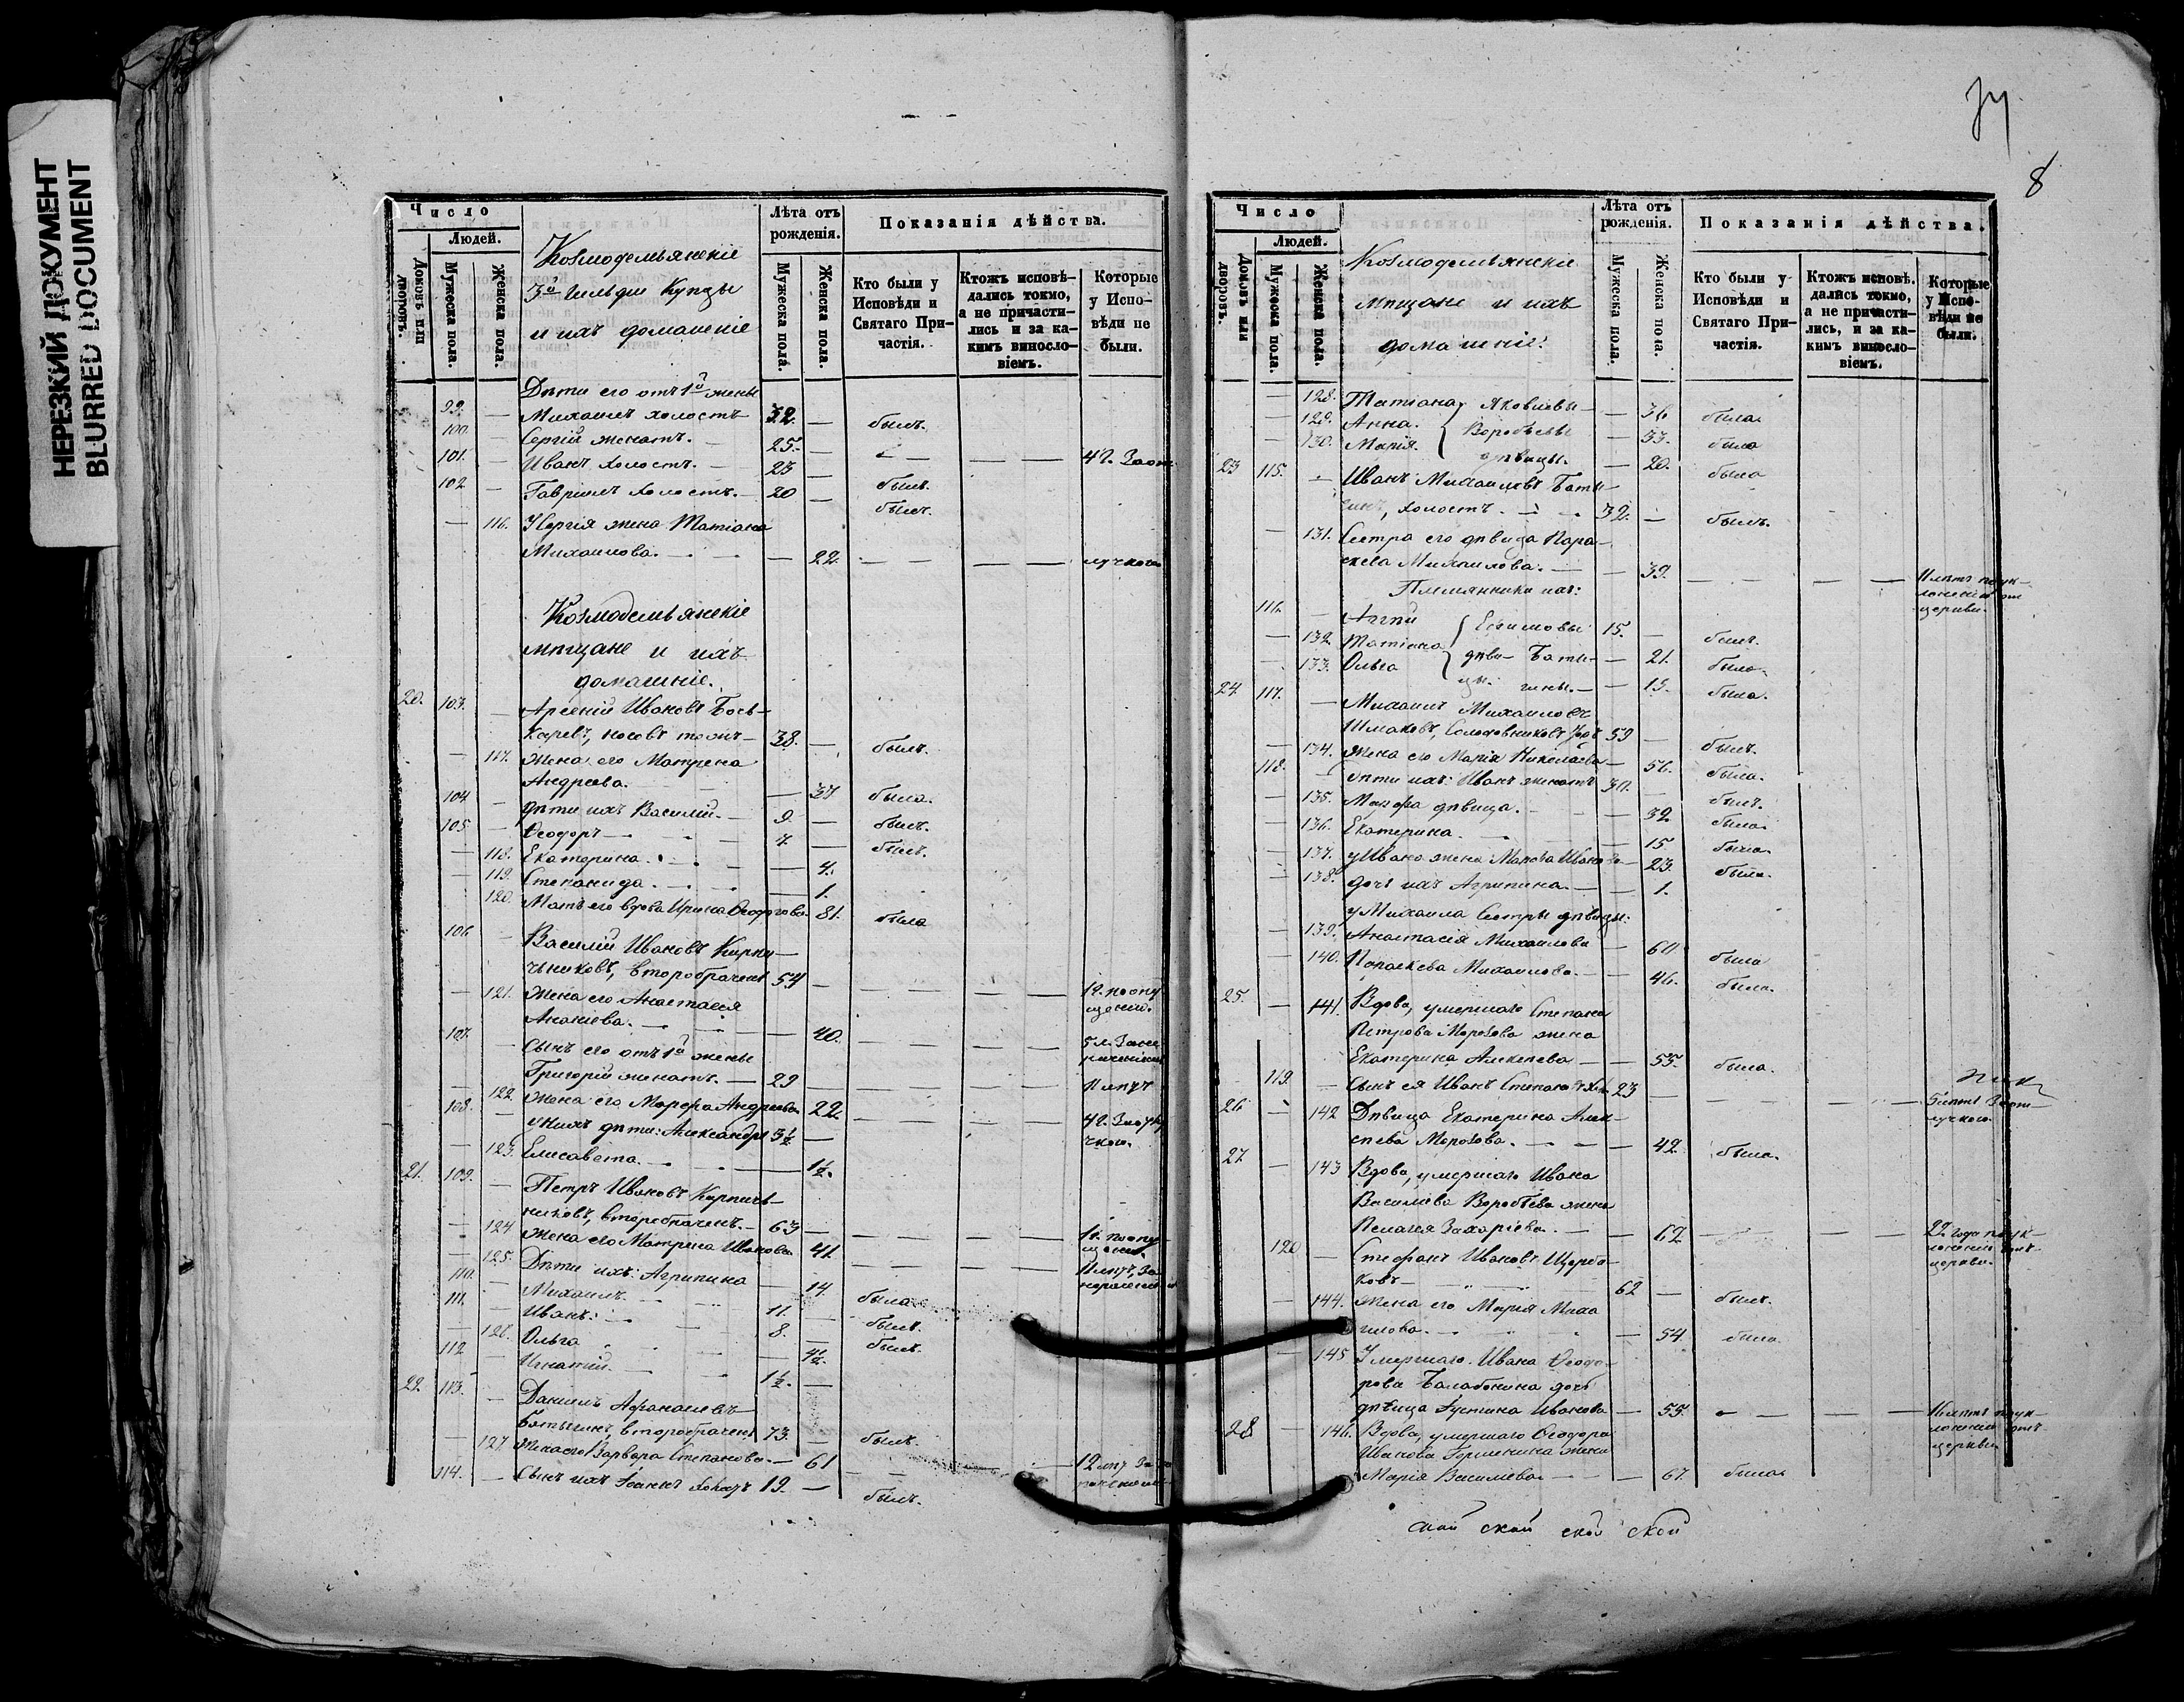 НЕРЕЗКИЙ ДОКУМЕНТ
BLURRED DOCUMENT
Число
Людей.
Домовъ или дворовъ.
Мужеска пола.
Женска пола.
Козмодемьянскіе
3й гильдіи Купцы
и ихъ домашніе
Лѣта отъ рожденія.
Мужеска пола.
Женска пола.
Показанія дѣйства.
Кто были у Исповѣди и Святаго Причастія.
Ктожъ исповѣдались токмо, а не причастились и за какимъ винословіемъ.
Которые у Исповѣди не были.
Дѣти его отъ 1й жены
99. — Михаилъ холостъ 32. — былъ.
100. — Сергій женатъ. — 25. — — — — 4 г. Заот
101. — Иванъ холостъ. — 23 — былъ.
102 — Гавріилъ холостъ. — 20 — былъ.
— 116. У Сергія жена Татіана
Михаилова. — — 22. — — — — лучкою
Козмодемьянскіе
мѣщане и ихъ
домашніе.
20. 103. — Арсеній Ивановъ Бось-
каревъ, носовъ тожъ — 38. — былъ.
— 117. Жена его Матрена
Андреева. — 37 была.
104 — дѣти ихъ Василій. — 9 — былъ.
105 — Ѳеодоръ — 7. — былъ.
— 118. Екатерина. — 4.
— 119. Степанида. — 1.
120. Мать его вдова Ирина Ѳеодорова. 81. была
106. — Василій Ивановъ Кирпи-
чниковъ, второбраченъ 54 — — — — 1 г. по опу
щенію.
— 121. Жена его Анастасія
Ананіева. — — 40. — — —
107. — Сынъ его отъ 1й жены
Григорій женатъ. — 29 — — — —
— 122 Жена его Марѳа Андреева 22. — — —
108. — у нихъ дѣти: Александръ 3½ —
123. Елисавета. — 1½.
21. 109. — Петръ Ивановъ Кирпич-
никовъ, второбраченъ. — 63 — — — — 1 г. по опу
щенію.
— 124 Жена его Матрена Иванова 41. — — —
— 125. Дѣти ихъ: Агрипина — 14. была
110. — Михаилъ. — 11. — былъ.
111. — Иванъ: — 8. — былъ.
— 126. Ольга — 4½.
112 — Игнатій. — 1½. —
22. 113. — Даніилъ Аѳанасіевъ
Батыгинъ, второбраченъ 73. — былъ.
— 127. Жена его Варвара Степанова. — 61 — — —
114. — Сынъ ихъ Іоаннъ холостъ 19. — былъ.
74
8
Число
Людей.
Домовъ или дворовъ.
Мужеска пола.
Женска пола.
Козмодемьянскіе
мѣщане и ихъ
домашніе.
Лѣта отъ рожденія.
Мужеска пола.
Женска пола.
Показанія дѣйства.
Кто были у Исповѣди и Святаго Причастія.
Ктожъ исповѣдались токмо, а не причастились, и за какимъ винословіемъ.
Которые у Исповѣди не были.
— 128. Татіана Яковлевы — 36 была.
— 129. Анна. Воробьевы — 33. была
— 130. Марія. дѣвицы. — 20. была
23 115. — Иванъ Михаиловъ Баты-
гинъ, холостъ. — 32. — былъ.
— 131. Сестра его дѣвица Пара-
скева Михаилова. — 39. — — — 11 лѣтъ по ук-
лоненію отъ
церкви.
Племянники ихъ:
116. — Ефимовы 15. — былъ.
— 132 Татіана дѣви- Баты- — 21. была.
— 133. Ольга цы: гины. — 13. была.
24 117. — Михаилъ Михаиловъ
Шмаковъ, Солодовниковъ тожъ 59 — былъ.
— 134. Жена его Марія Николаева — 56. была.
118. — дѣти ихъ: Иванъ женатъ — былъ.
— 135. дѣвица. — 32 была.
— 136. Екатерина. — 15 была.
— 137. у Ивана жена Марѳа Иванова — 23. была.
— 138. дочь ихъ Агрипина. — 1.
у Михаила Сестры дѣвицы:
— 139. Анастасія Михаилова — 60 была
— 140. Параскева Михаилова. — 46. была.
25. — 141. Вдова, умершаго Степана
Петрова Морозова жена
Екатерина Алексіева — 55. была.
119. — Сынъ ея Иванъ Степановъ 23 — — — — 5 лѣтъ За от
лучкою.
26 — 142 Дѣвица Екатерина Алек-
сіева Морозова. — 42 была.
27 — 143 Вдова, умершаго Ивана
Василіева Воробьева жена
Пелагія Захаріева. — 62 — — — 22 года по ук-
лоненію отъ
церкви.
120 — Стефанъ Ивановъ Щерба-
ковъ — 62 — былъ.
— 144. Жена его Марія Миха
илова. — 54. была
— 145 Умершаго Ивана Ѳеодо-
рова Балабонина дочь
дѣвица Іустина Иванова — 55. — — — 16 лѣтъ по ук-
лоненію отъ
церкви
28 — 146. Вдова, умершаго Ѳеодора
Иванова жена
Марія Василіева. — 67. была
ской ской ской ской